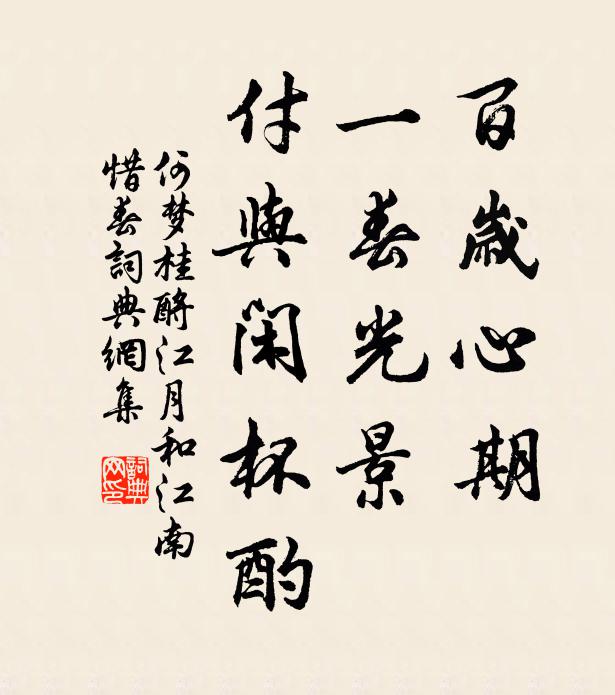 百歲心期
一春光景
付與閑杯酌
何梦桂酹江月和江南
惜春詞典網集
詞典
网印